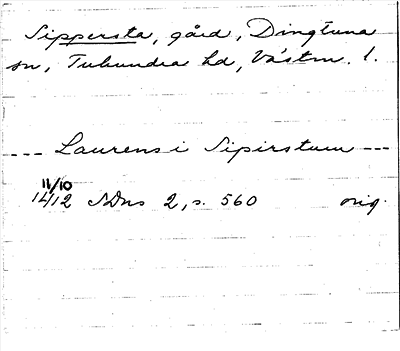 Sippersta, gård, Dingtuna
sn, Tuhundra hd, Västm. l.
--- Laurens i Sipirstum ---
11/10
1412 SDns 2, s. 560 orig.